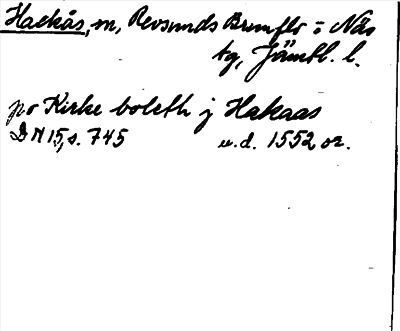 Hackås, sn, Revsunds Brunflo o Näs
tg, Jämtl. l.
po Kirke boleth j Hakaas
DN 15, s. 745 u.d. 1552 or.